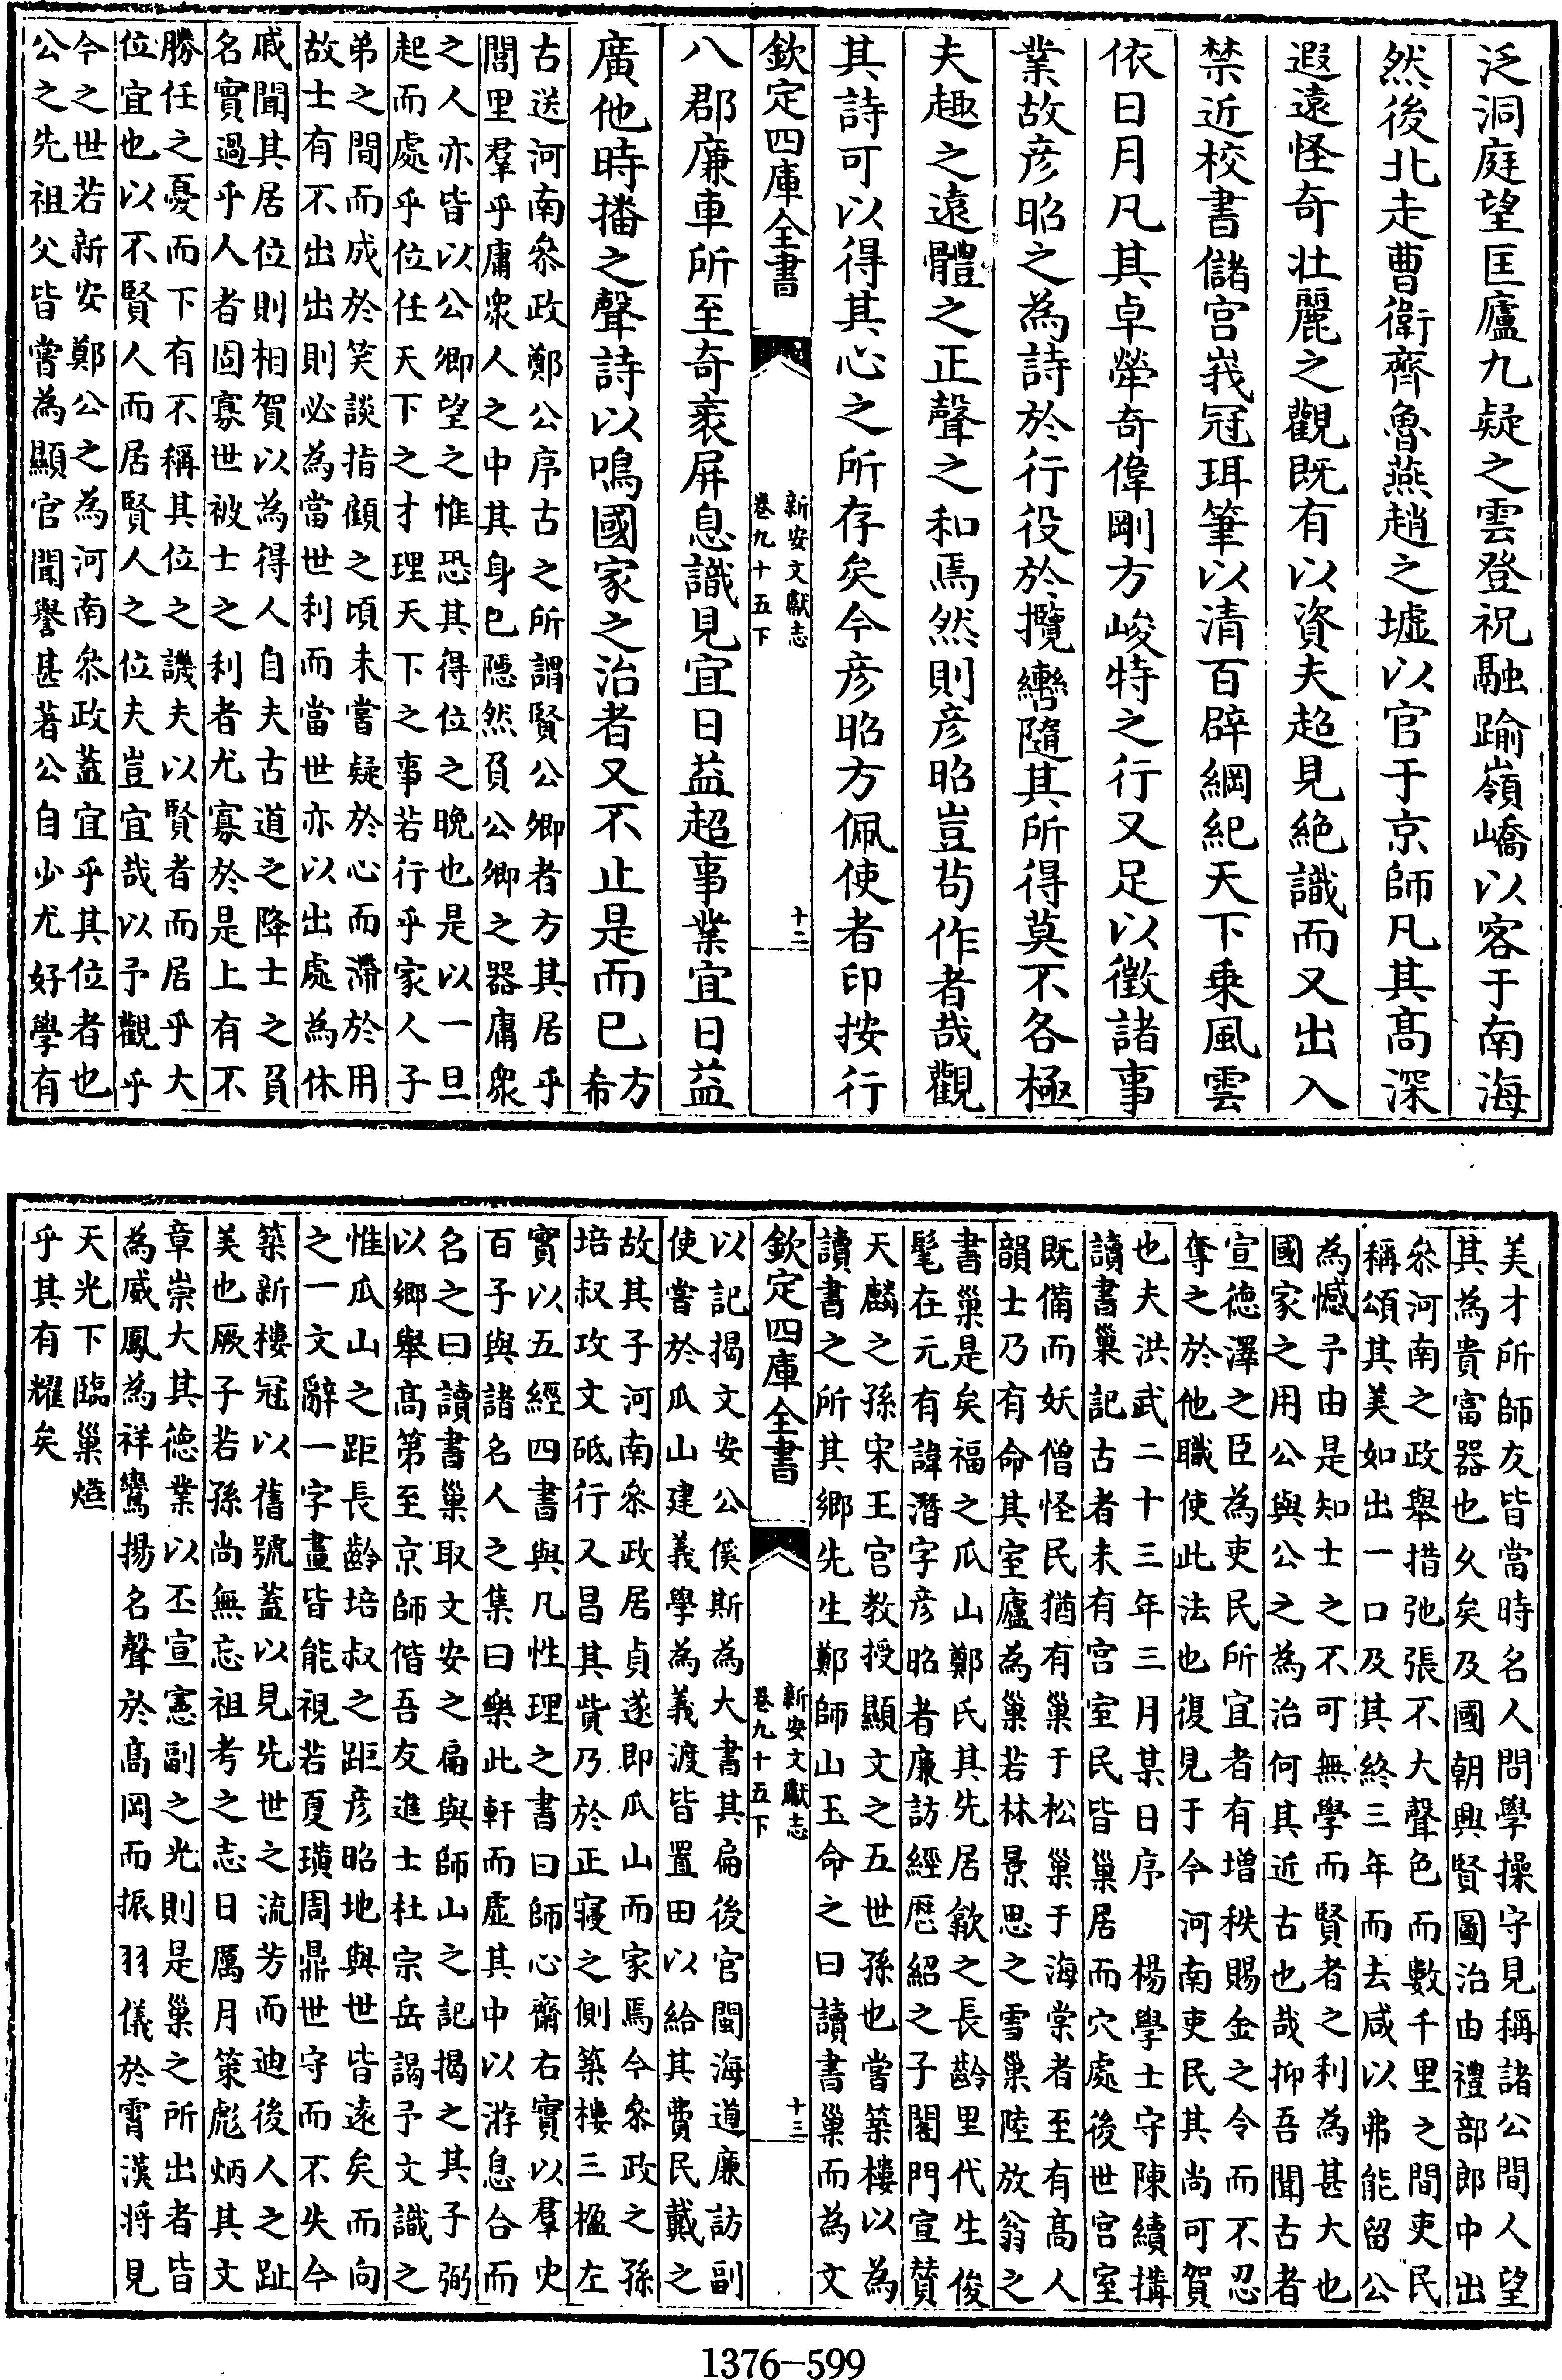 泛洞庭望匡廬九疑之雲登祝融踰嶺嶠以客于南海
然後北走曹衛齊魯燕趙之墟以官于京師凡其髙深
遐遠怪奇壮麗之觀既有以資夫超見絶識而又出入
禁近校書儲宫峩冠珥筆以清百辟綱紀天下乗風雲
依日月凡其卓犖奇偉剛方峻特之行又足以徵諸事
業故彦昭之為詩於行役於攬轡隨其所得莫不各極
夫趣之遠體之正聲之和焉然則彦昭豈苟作者哉觀
其詩可以得其心之所存矣今彦昭方佩使者印按行
欽定四庫全書
新安文獻志
卷九十五下
十二
八郡廉車所至奇衺屏息識見宜日益超事業宜日益
廣他時播之聲詩以鳴國家之治者又不止是而已方
希
古送河南叅政鄭公序古之所謂賢公卿者方其居乎
閭里羣乎庸衆人之中其身已隠然負公卿之器庸衆
之人亦皆以公卿望之惟恐其得位之晩也是以一旦
起而處乎位任天下之才理天下之事若行乎家人子
弟之間而成於笑談指顧之頃未嘗疑於心而滯於用
故士有不出出則必為當世利而當世亦以出處為休
戚聞其居位則相賀以為得人自夫古道之降士之負
名實過乎人者固寡世被士之利者尤寡於是上有不
勝任之憂而下有不稱其位之譏夫以賢者而居乎大
位宜也以不賢人而居賢人之位夫豈宜哉以予觀乎
今之世若新安鄭公之為河南叅政蓋宜乎其位者也
公之先祖父皆嘗為顯官聞譽甚著公自少尤好學有
美才所師友皆當時名人問學操守見稱諸公間人望
其為貴富器也乆矣及國朝興賢圖治由禮部郎中出
叅河南之政舉措弛張不大聲色而數千里之間吏民
稱頌其美如出一口及其終三年而去咸以弗能留公
為憾予由是知士之不可無學而賢者之利為甚大也
國家之用公與公之為治何其近古也哉抑吾聞古者
宣徳澤之臣為吏民所宜者有增秩賜金之令而不忍
奪之於他職使此法也復見于今河南吏民其尚可賀
也夫洪武二十三年三月某日序　楊學士守陳續搆
讀書巢記古者未有宫室民皆巢居而穴處後世宫室
既備而妖僧怪民猶有巢于松巢于海棠者至有髙人
韻士乃有命其室廬為巢若林景思之雪巢陸放翁之
書巢是矣福之瓜山鄭氏其先居歙之長齡里代生俊
髦在元有諱潛字彦昭者廉訪經歴紹之子閣門宣賛
天麟之孫宋王宫教授顯文之五世孫也嘗築樓以為
讀書之所其鄉先生鄭師山玉命之曰讀書巢而為文
欽定四庫全書
新安文獻志
卷九十五下
十三
以記揭文安公傒斯為大書其扁後官閩海道廉訪副
使嘗於瓜山建義學為義渡皆置田以給其費民戴之
故其子河南叅政居貞遂即瓜山而家焉今叅政之孫
培叔攻文砥行又昌其貲乃於正寢之側築樓三楹左
實以五經四書與凡性理之書曰師心齋右實以羣史
百子與諸名人之集曰樂此軒而虚其中以游息合而
名之曰讀書巢取文安之扁與師山之記揭之其子弼
以鄉舉髙第至京師偕吾友進士杜宗岳謁予文識之
惟瓜山之距長齡培叔之距彦昭地與世皆遠矣而向
之一文辭一字畫皆能視若夏璜周鼎世守而不失今
築新樓冠以舊號蓋以見先世之流芳而迪後人之趾
美也厥子若孫尚無忘祖考之志日厲月策彪炳其文
章崇大其徳業以丕宣憲副之光則是巢之所出者皆
為威鳳為祥鸞揚名聲於髙岡而振羽儀於霄漢将見
天光下臨巢㷼
乎其有耀矣
1376—599